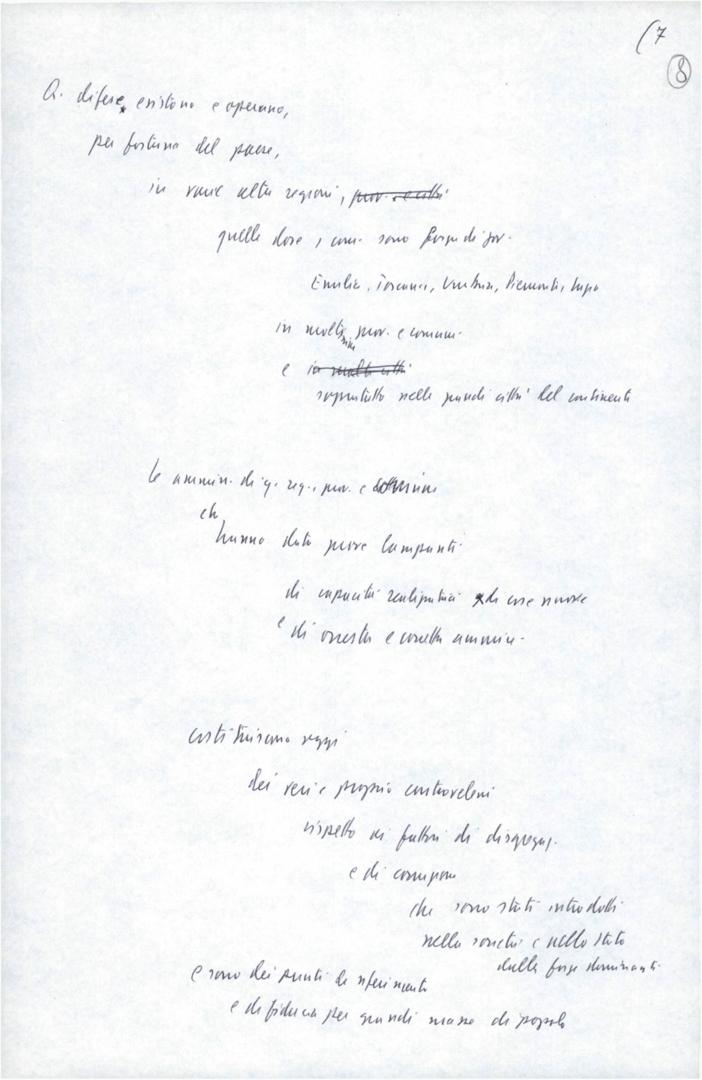 (7
8
Q. difese esistono e operano,
per fortuna del paese,
in varie altre regioni, prov. e città
quelle dove, i com. sono forze di gov.
Emilia, Toscana, Umbria, Piemonte,
in moltissimi prov. e comuni
e in molte città
soprattutto nelle grandi città del continente
le ammin. di q. reg., prov. e comuni
che
hanno dato prove lampanti
di capacità realizzatrici di cose nuove
e di onesta e corretta ammin.
costituiscono oggi
dei veri e propri controveleni
rispetto ai fattori di disgregaz.
e di corruzione
che sono stati introdotti
nella società e nello Stato
dalle forze dominanti
e sono dei punti di riferimento
e di fiducia per grandi masse di popolo